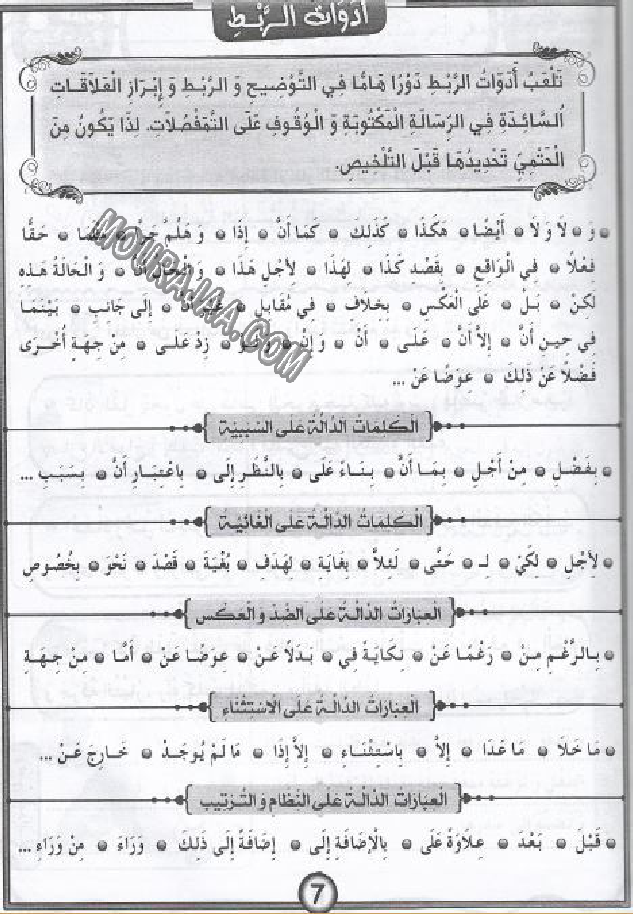 أَدَوَاتُ الرَّبْطِ
تَلْعَبُ أَدَوَاتُ الرَّبْطِ دَوْرًا هَامًّا فِي التَّوْضِيحِ وَ الرَّبْطِ وَ إِبْرَازِ الْعَلَاقَاتِ
السَّائِدَةِ فِي الرِّسَالَةِ الْمَكْتُوبَةِ وَ الْوُقُوفِ عَلَى التَّمَفْصُلَاتِ. لِذَا يَكُونُ مِنَ
الْحَتْمِيِّ تَحْدِيدُهَا قَبْلَ التَّلْخِيصِ.
● وَ ● لَا وَ لَا ● أَيْضًا ● هَكَذَا ● كَذَلِكَ ● كَمَا أَنَّ ● إِذًا ● وَ هَلُمَّ جَرًّا ● حَقًّا
فِعْلًا ● فِي الْوَاقِعِ ● بِقَصْدِ كَذَا ● لِهَذَا ● لِأَجْلِ هَذَا ● وَ الْحَالَةُ هَذِهِ
لَكِنْ ● بَلْ ● عَلَى الْعَكْسِ ● بِخِلَافِ ● فِي مُقَابِلِ ● إِلَى جَانِبِ ● بَيْنَمَا
فِي حِينِ أَنَّ ● إِلَّا أَنَّ ● عَلَى ● أَنْ ● وَ إِنْ ● وَ لَوْ ● زِدْ عَلَى ● مِنْ جِهَةٍ أُخْرَى
فَضْلًا عَنْ ذَلِكَ ● عِوَضًا عَنْ ...
MOURAJAA.COM
الْكَلِمَاتُ الدَّالَّةُ عَلَى السَّبَبِيَّةِ
● بِفَضْلِ ● مِنْ أَجْلِ ● بِمَا أَنَّ ● بِنَاءً عَلَى ● بِالنَّظَرِ إِلَى ● بِاعْتِبَارِ أَنَّ ● بِسَبَبِ ...
الْكَلِمَاتُ الدَّالَّةُ عَلَى الْغَائِيَّةِ
● لِأَجْلِ ● لِكَيْ ● لِـ ● حَتَّى ● لِئَلَّا ● بِغَايَةِ ● لِهَدَفِ ● بُغْيَةَ ● قَصْدَ ● نَحْوَ ● بِخُصُوصِ
الْعِبَارَاتُ الدَّالَّةُ عَلَى الضِّدِّ وَ الْعَكْسِ
● بِالرَّغْمِ مِنْ ● رَغْمًا عَنْ ● نِكَايَةً فِي ● بَدَلًا عَنْ ● عِوَضًا عَنْ ● أَمَّا ● مِنْ جِهَةِ
الْعِبَارَاتُ الدَّالَّةُ عَلَى الِاسْتِثْنَاءِ
● مَا خَلَا ● مَا عَدَا ● إِلَّا ● بِاسْتِثْنَاءِ ● إِلَّا إِذَا ● مَا لَمْ يُوجَدْ ● خَارِجَ عَنْ ...
الْعِبَارَاتُ الدَّالَّةُ عَلَى النِّظَامِ وَ التَّرْتِيبِ
● قَبْلَ ● بَعْدَ ● عِلَاوَةً عَلَى ● بِالْإِضَافَةِ إِلَى ● إِضَافَةً إِلَى ذَلِكَ ● وَرَاءَ ● مِنْ وَرَاءِ ...
7